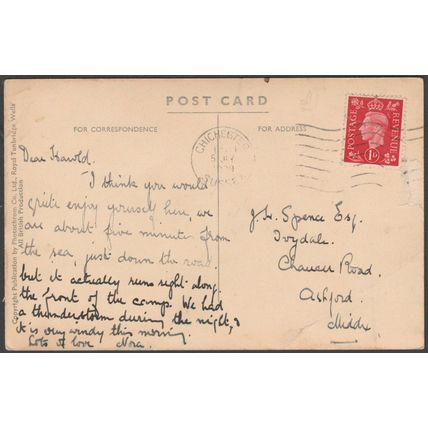 POST CARD
FOR CORRESPONDENCE
FOR ADDRESS
Copyright Publication by Photochrom Co., Ltd., Royal Tunbridge Wells
All British Production
CHICHESTER
SUSSEX
POSTAGE
REVENUE
1D
Dear Harold.
I think you would
quite enjoy yourself here, we
are about five minutes from
the sea, just down the road.
but it actually runs right along
the front of the camp. We had
a thunderstorm during the night, &
it is very windy this morning.
Lots of love Nora.
J. L. Spence Esq.
Ivydale.
Chaucer Road.
Ashford.
Middx